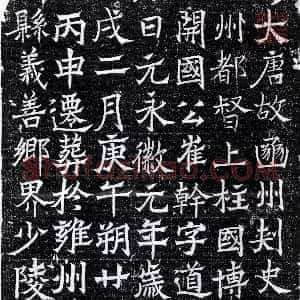 大唐故州刾史
州都督上柱國博
開國公崔幹字道
日元永徽元年歲
戌二月庚午朔廿
丙申遷葬於雍州
縣義善鄉界少陵